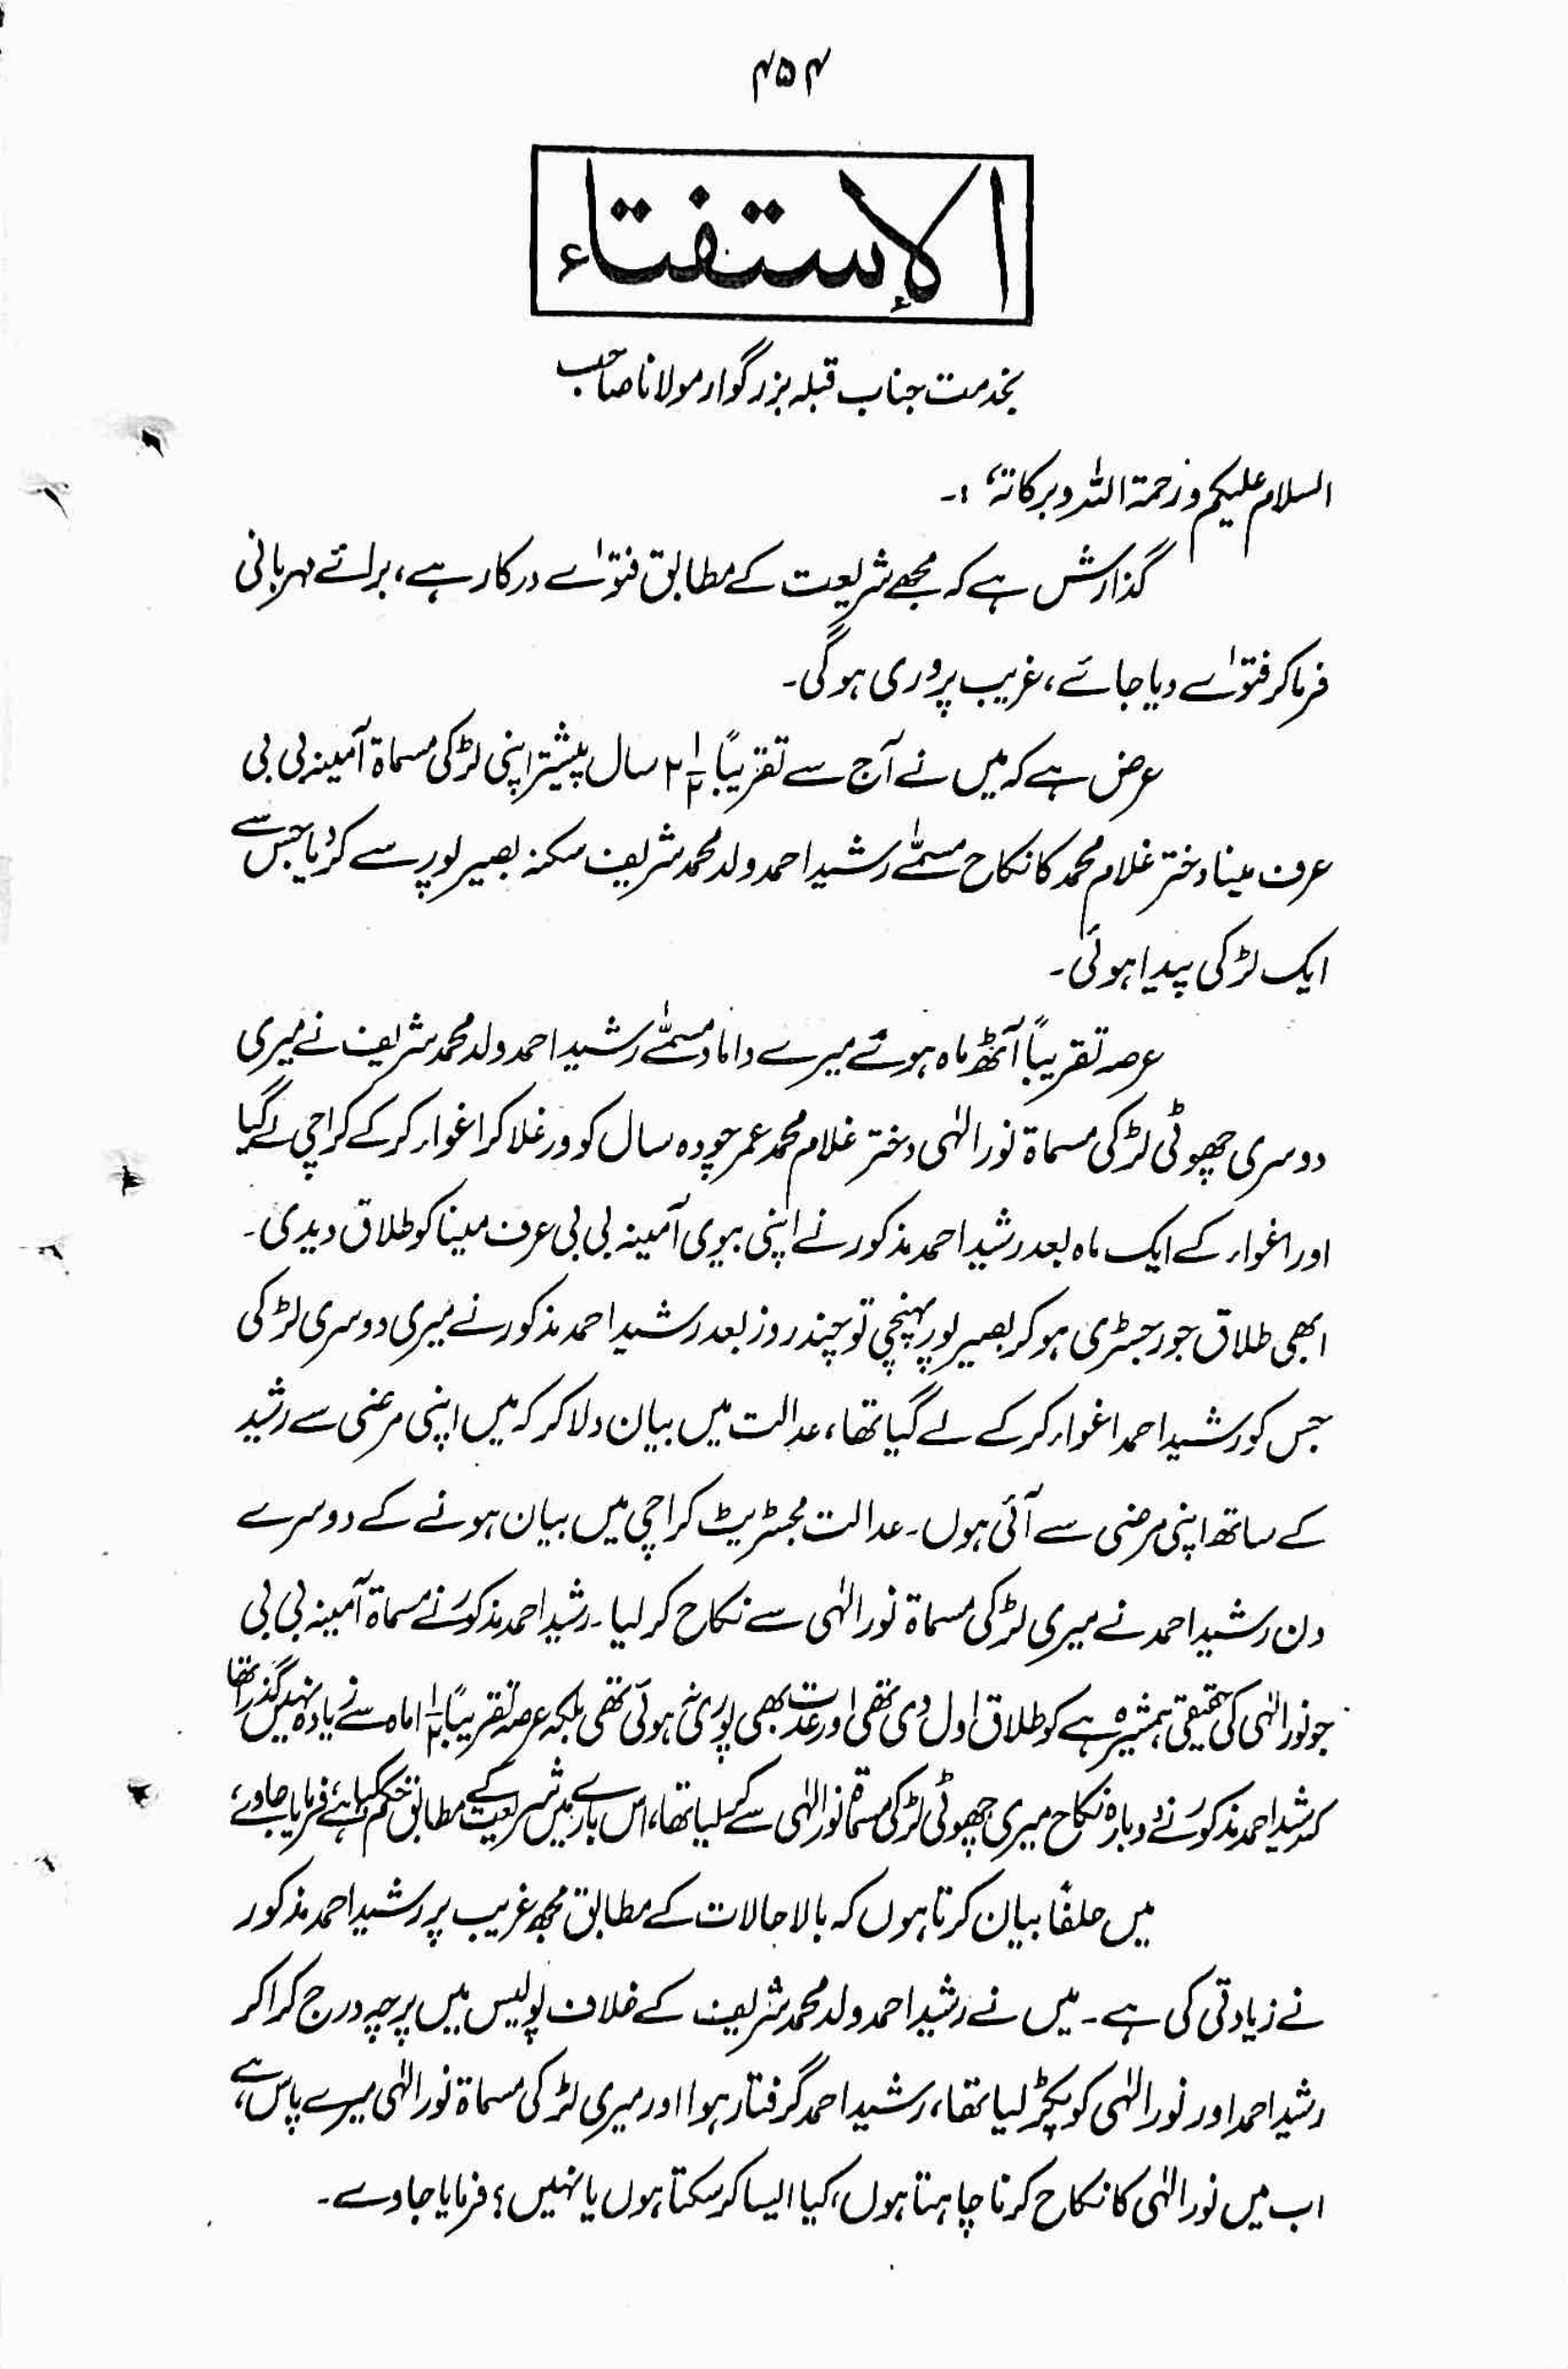 ۴۵۴
الاستفتاء
بخدمت جناب قبلہ بزرگوار مولانا صاحب
السلام علیکم و رحمۃ اللہ و برکاتہٗ :۔
گذارش ہے کہ مجھے شریعت کے مطابق فتوٰے درکار ہے، برائے مہربانی
فرما کر فتوٰے دیا جائے، غریب پروری ہوگی۔
عرض ہے کہ میں نے آج سے تقریباً ۲½ سال پیشتر اپنی لڑکی مسماۃ آمینہ بی بی
عرف مینا دختر غلام محمد کا نکاح مسمّٰے رشید احمد ولد محمد شریف سکنہ بصیر پور سے کردیا جس سے
ایک لڑکی پیدا ہوئی۔
عرصہ تقریباً آٹھ ماہ ہوئے میرے داماد مسمّٰے رشید احمد ولد محمد شریف نے میری
دوسری چھوٹی لڑکی مسماۃ نور الٰہی دختر غلام محمد عمر چودہ سال کو ورغلا کر اغوار کرکے کراچی لے گیا
اور اغوار کے ایک ماہ بعد رشید احمد مذکور نے اپنی بیوی آمینہ بی بی عرف مینا کو طلاق دیدی۔
ابھی طلاق جو رجسٹری ہو کر بصیر پور پہنچی تو چند روز بعد رشید احمد مذکور نے میری دوسری لڑکی
جس کو رشید احمد اغوار کرکے لے گیا تھا، عدالت میں بیان دلا کر کہ میں اپنی مرضی سے رشید
کے ساتھ اپنی مرضی سے آئی ہوں۔ عدالت مجسٹریٹ کراچی میں بیان ہونے کے دوسرے
دن رشید احمد نے میری لڑکی مسماۃ نور الٰہی سے نکاح کر لیا۔ رشید احمد مذکور نے مسماۃ آمینہ بی بی
جو نور الٰہی کی حقیقی ہمشیرہ ہے کو طلاق اول دی تھی اور عدت بھی پوری نہ ہوئی تھی بلکہ عرصہ تقریباً ۱½ ماہ سے زیادہ نہیں گذرا تھا
کہ رشید احمد مذکور نے دوبارہ نکاح میری چھوٹی لڑکی مسماۃ نور الٰہی سے کر لیا تھا، اس بارے میں شریعت کے مطابق حکم کیا ہے؟ فرمایا جاوے؟
میں حلفًا بیان کرتا ہوں کہ بالا حالات کے مطابق مجھ غریب پر رشید احمد مذکور
نے زیادتی کی ہے۔ میں نے رشید احمد ولد محمد شریف کے خلاف پولیس میں پرچہ درج کرا کر
رشید احمد اور نور الٰہی کو پکڑ لیا تھا، رشید احمد گرفتار ہوا اور میری لڑکی مسماۃ نور الٰہی میرے پاس ہے،
اب میں نور الٰہی کا نکاح کرنا چاہتا ہوں، کیا ایسا کر سکتا ہوں یا نہیں؟ فرمایا جاوے۔